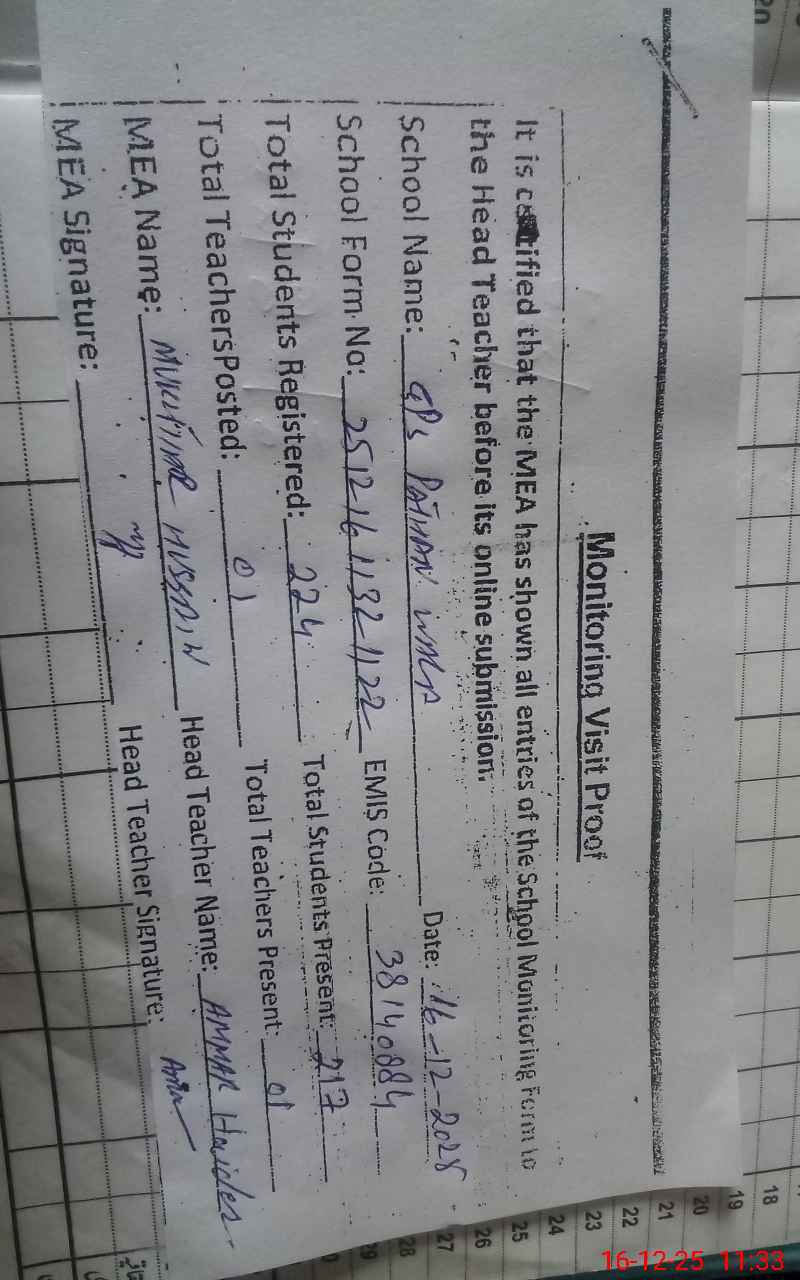 Monitoring Visit Proof
It is certified that the MEA has shown all entries of the School Monitoring Form to
the Head Teacher before its online submission.
School Name: GPS PATHAN WALA Date: 16-12-2025
School Form No: 25121611321122 EMIS Code: 38140884
Total Students Registered: 224 Total Students Present: 217
Total Teachers Posted: 01 Total Teachers Present: 01
MEA Name: MUKHTIAR HUSSAIN Head Teacher Name: AMMAR Haider
MEA Signature: Head Teacher Signature:
18
19
20
21
22
23
24
25
26
27
28
29
16-12-25 11:33